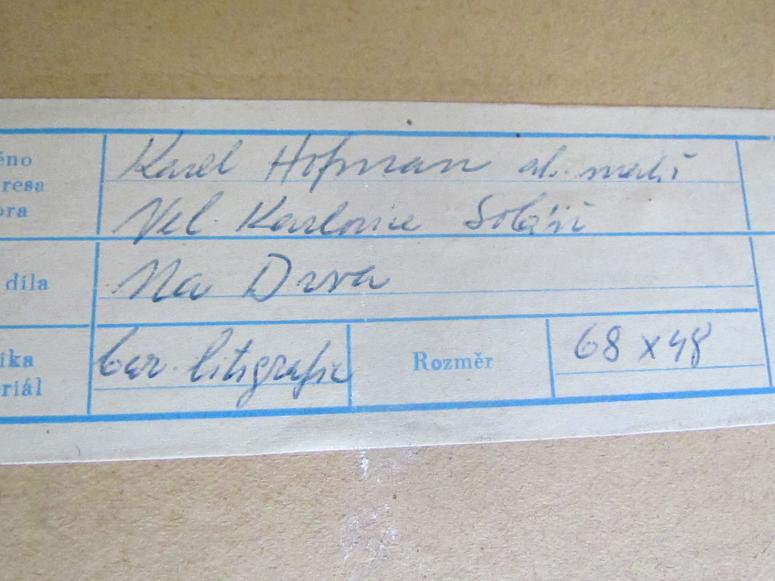 éno
resa
ora
Karel Hofman ak. malíř
Vel. Karlovice Soláň
díla
Na Drva
ika
riál
bar. litografie
Rozměr
68 x 48